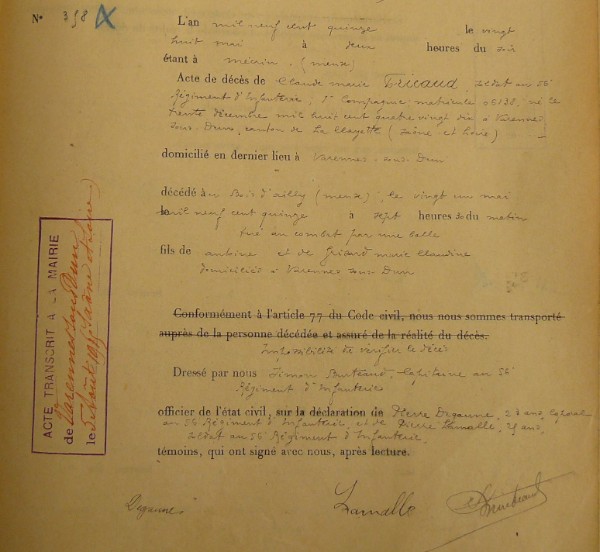 N° 398
L'an mil neuf cent quinze le vingt
huit mai à deux heures du soir
étant à Mécrin (Meuse)
Acte de décès de Claude Marie Tricaud, soldat au 56e
Régiment d'Infanterie, 1e Compagnie, matricule 05138, né le
trente décembre mil huit cent quatre vingt dix à Varennes
sous Dun, canton de La Clayette (Saône et Loire)
domicilié en dernier lieu à Varennes sous Dun
décédé au Bois d'Ailly (Meuse), le vingt un mai
le mil neuf cent quinze à sept heures du matin
tué au combat par une balle
fils de Antoine et de Marie Claudine
domiciliés à Varennes sous Dun
Conformément à l'article 77 du Code civil, nous nous sommes transporté
auprès de la personne décédée et assuré de la réalité du décès.
Impossibilité de vérifier le décès
Dressé par nous Simon, Capitaine au 56e
Régiment d'Infanterie
officier de l'état civil, sur la déclaration de Pierre Deganne, ans, Caporal
au 56e Régiment d'Infanterie, et de Pierre Lamalle, 29 ans,
soldat au 56e Régiment d'Infanterie,
témoins, qui ont signé avec nous, après lecture.
Deganne Lamalle
ACTE TRANSCRIT A LA MAIRIE
de Varennes sous Dun
le août 1915 (Saône et Loire)